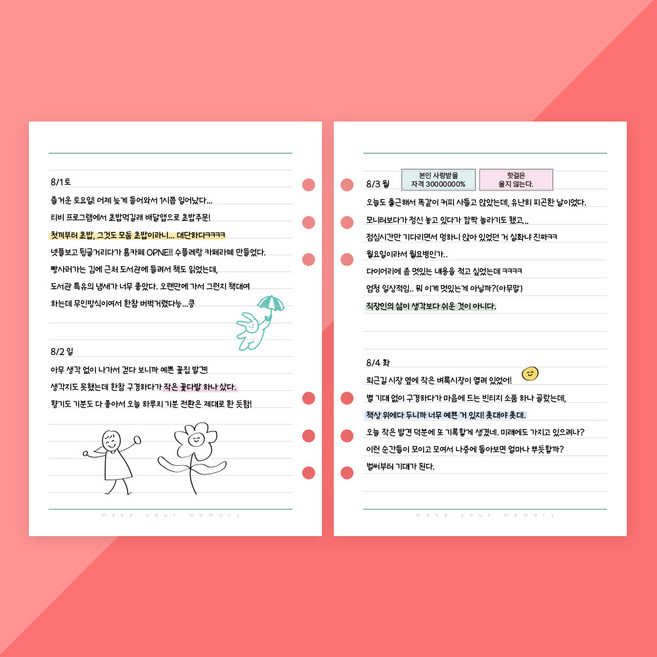 8/1 토
즐거운 토요일! 어제 늦게 들어와서 1시쯤 일어났다...
티비 프로그램에서 초밥먹길래 배달앱으로 초밥주문!
첫끼부터 초밥, 그것도 모둠 초밥이라니... 대단하다ㅋㅋㅋㅋ
넷플보고 뒹굴거리다가 홈카페 OPNE!! 수플레랑 카페라떼 만들었다.
빵사러가는 김에 근처 도서관에 들려서 책도 읽었는데,
도서관 특유의 냄새가 너무 좋았다. 오랜만에 가서 그런지 책대여
하는데 무인방식이여서 한참 버벅거렸다능...쿵
8/2 일
아무 생각 없이 나가서 걷다 보니까 예쁜 꽃집 발견!
생각지도 못했는데 한참 구경하다가 작은 꽃다발 하나 샀다.
향기도 기분도 다 좋아서 오늘 하루치 기분 전환은 제대로 한 듯함!
make your memory
8/3 월
본인 사랑받을
자격 30000000%
핫걸은
울지 않는다.
오늘도 출근해서 똑같이 커피 사들고 앉았는데, 유난히 피곤한 날이었다.
모니터보다가 정신 놓고 있다가 깜짝 놀라기도 했고...
점심시간만 기다리면서 멍하니 앉아 있었던 거 실화냐 진짜ㅋㅋ
월요일이라서 월요병인가..
다이어리에 좀 멋있는 내용을 적고 싶었는데 ㅋㅋㅋㅋ
엄청 일상적임.. 뭐 이게 멋있는게 아닐까?(아무말)
직장인의 삶이 생각보다 쉬운 것이 아니다.
8/4 화
퇴근길 시장 옆에 작은 벼룩시장이 열려 있었어!
별 기대 없이 구경하다가 마음에 드는 빈티지 소품 하나 골랐는데,
책상 위에다 두니까 너무 예쁜 거 있지! 촛대야 촛대.
오늘 작은 발견 덕분에 또 기록할게 생겼네. 미래에도 가지고 있으려나?
이런 순간들이 모이고 모여서 나중에 돌아보면 얼마나 뿌듯할까?
벌써부터 기대가 된다.
make your memory